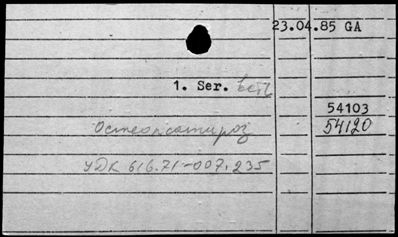 23.04.85 GA
1. Ser.
54103
54120
УДК 616.71-007.235